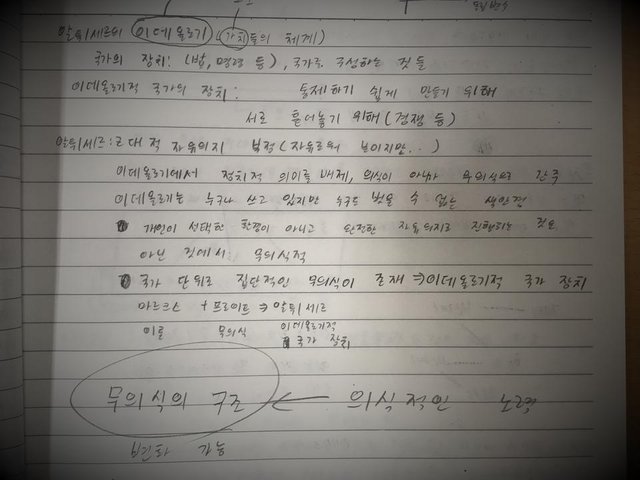 알튀세르의 이데올로기 (가치들의 체계)
국가의 장치: (법, 명령 등), 국가를 구성하는 것들
이데올로기적 국가의 장치: 통제하기 쉽게 만들기 위해
서로 흩어놓기 위해 (경쟁 등)
알튀세르: 근대적 자유의지 부정 (자유로워 보이지만..)
이데올로기에서 정치적 의미를 배제, 의식이 아니라 무의식으로 간주
이데올로기는 누구나 쓰고 있지만 누구도 벗을 수 없는 색안경
개인이 선택한 환경이 아니고 완전한 자유의지로 진행되는 것도
아닌 것에서 무의식적
국가 단위로 집단적인 무의식이 존재 ⇒ 이데올로기적 국가 장치
마르크스 + 프로이트 ⇒ 알튀세르
이론 무의식 이데올로기적
국가 장치
무의식의 구조 ← 의식적인 노력
변화 가능